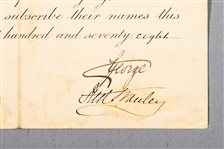 subscribe their names this
hundred and seventy eight
George
Stanley